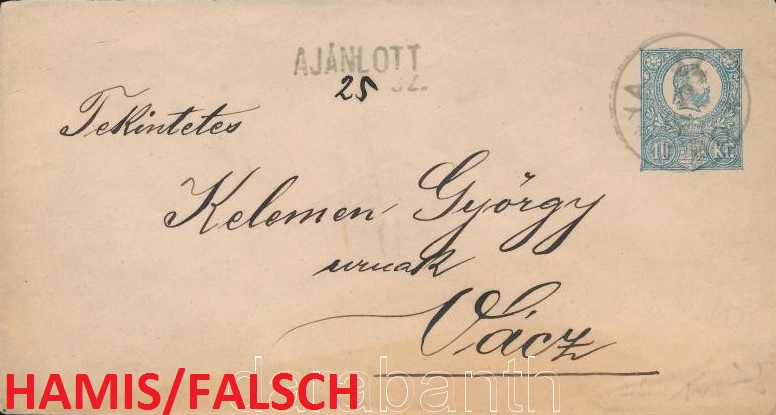 AJÁNLOTT
25 SZ.
Tekintetes
Kelemen György
urnak
Vácz
10 Kr
HAMIS/FALSCH
darabanth